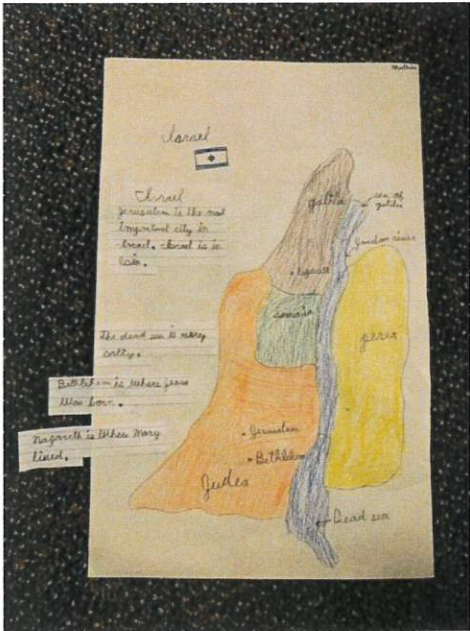 Israel
Israel
Jerusalem is the most
important city in
Israel. Israel is in
The dead sea is very
salty.
Bethlehem is where jesus
was born.
Nazareth is where Mary
lived.
galilee
sea of
galilee
Jordan river
samaria
perea
Jerusalem
Bethlehem
Judea
Dead sea